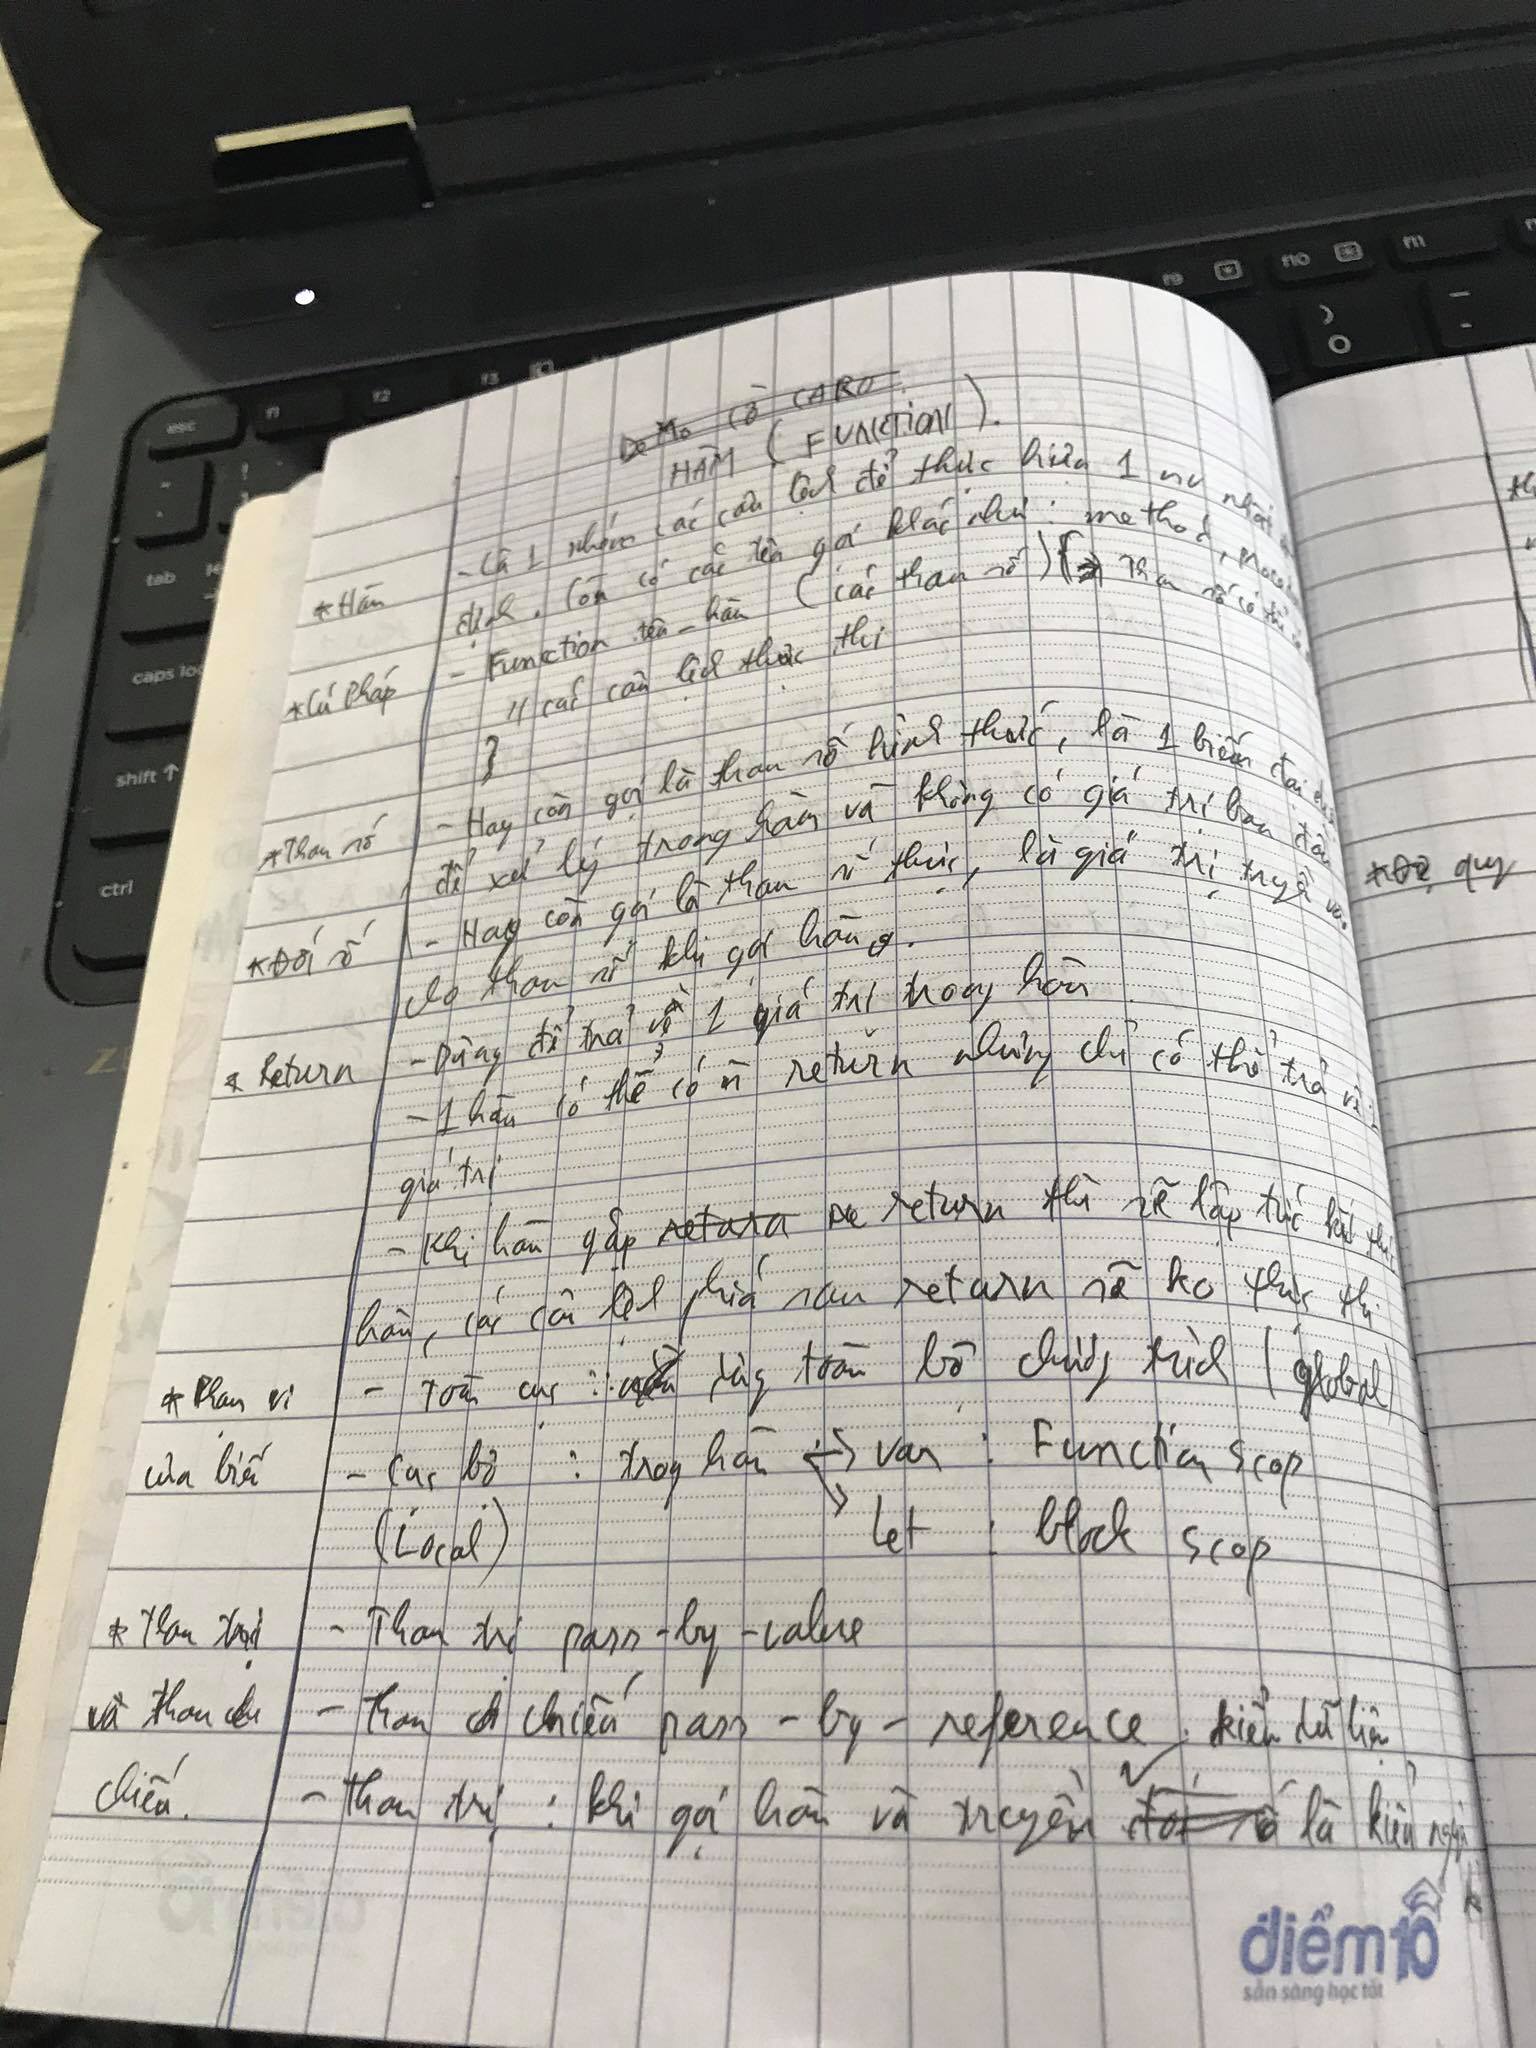 Demo cờ CARO
HÀM (FUNCTION).
*Hàm - Là 1 nhóm các câu lệnh để thực hiện 1 nv nhất
định. Còn có các tên gọi khác như: method,
*Cú Pháp - Function tên-hàm (các tham số) {
// các câu lệnh thực thi
}
*Tham số - Hay còn gọi là tham số hình thức, là 1 biến đại diện
để xử lý trong hàm và không có giá trị ban đầu
*Đối số - Hay còn gọi là tham số thực, là giá trị truyền vào
cho tham số khi gọi hàm.
* Return - Dùng để trả về 1 giá trị trong hàm
- 1 hàm có thể có n return nhưng chỉ có thể trả về 1
giá trị
- Khi hàm gặp return return thì sẽ lập tức kết thúc
hàm, các câu lệnh phía sau return sẽ ko thực thi
* Phạm vi - Toàn cục : toàn bộ chương trình (global)
của biến - Cục bộ : trong hàm → var : Function scop
(Local) → let : block scop
* Tham trị - Tham trị pass-by-value
và tham chiếu - tham chiếu pass-by-reference. kiểu dữ liệu
chiếu. - tham trị : khi gọi hàm và truyền đối số là kiểu
*Đệ quy
diểm10
sẵn sàng học tốt
esc
f1
f2
f3
f9
f10
f11
tab
caps loc
shift ↑
ctrl